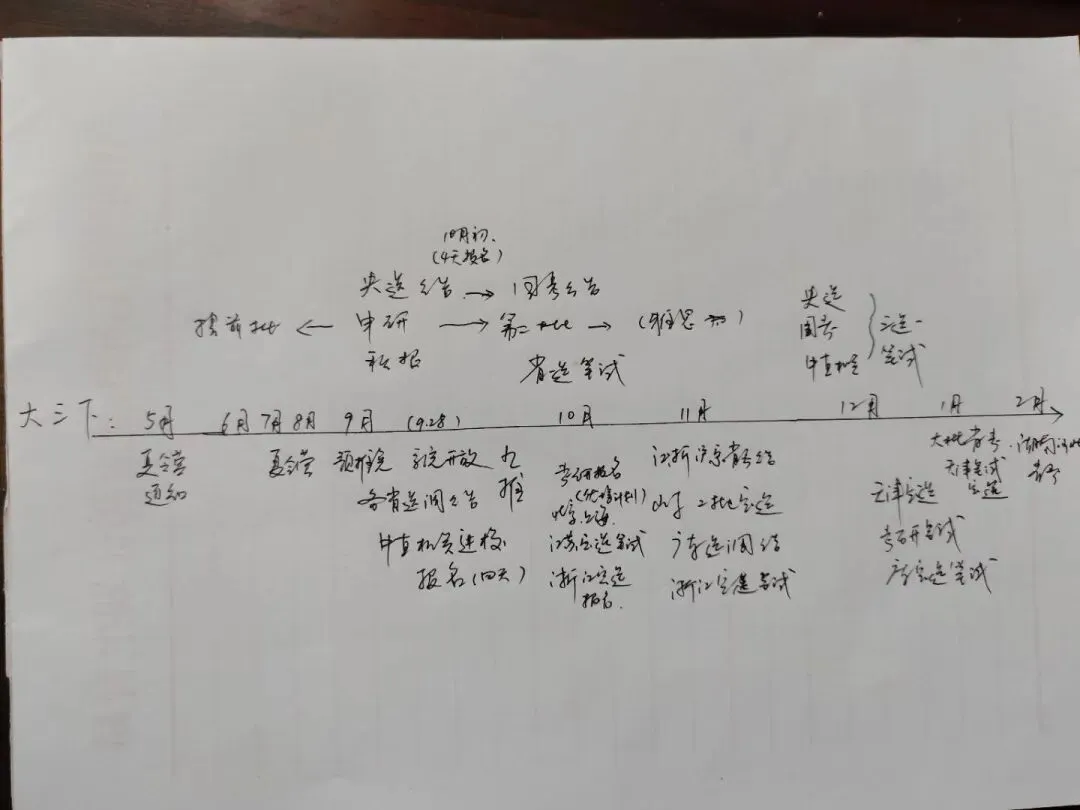 10月初.
(4天报名)
央选公告 → 国考公告
提前批 ← 申研 → 第二批 → (雅思)
秋招
省选笔试
央选
国考
中直机关
三选一
笔试
大三下: 5月 6月 7月 8月 9月 (9.28) 10月 11月 12月 1月 2月
夏令营
通知
夏令营
预推免
系统开放
九推
各省选调公告
中直机关进校
报名(四天)
考研报名
北京上海
江苏定选笔试
浙江定选
报名.
江浙沪京省考公告
山东 二批定选
广东选调公告
浙江定选笔试
天津定选
考研笔试
广东定选笔试
大批省考
天津笔试
定选